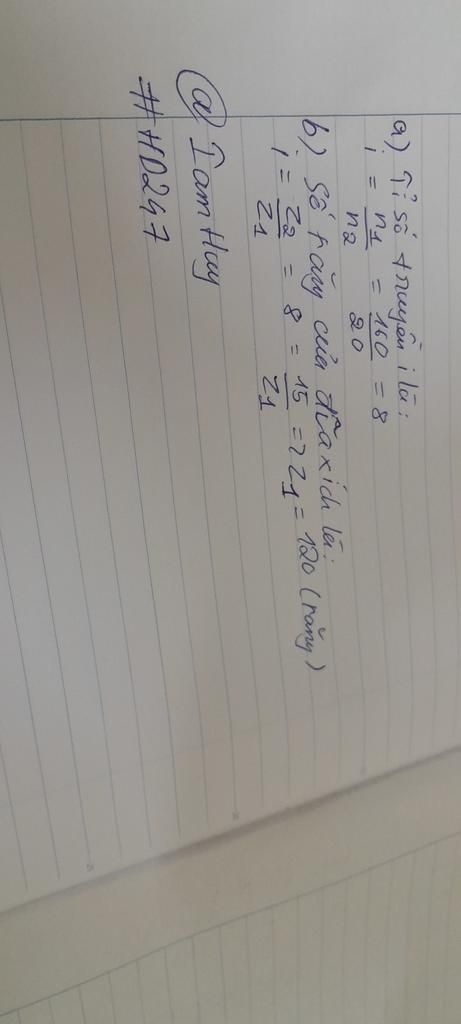 a) Tỉ số truyền i là:
i = n1/n2 = 160/20 = 8
b) Số răng của đĩa xích là:
i = Z2/Z1 = 8 = 15/Z1 => Z1 = 120 (răng)
@ IamHuy
#HD247